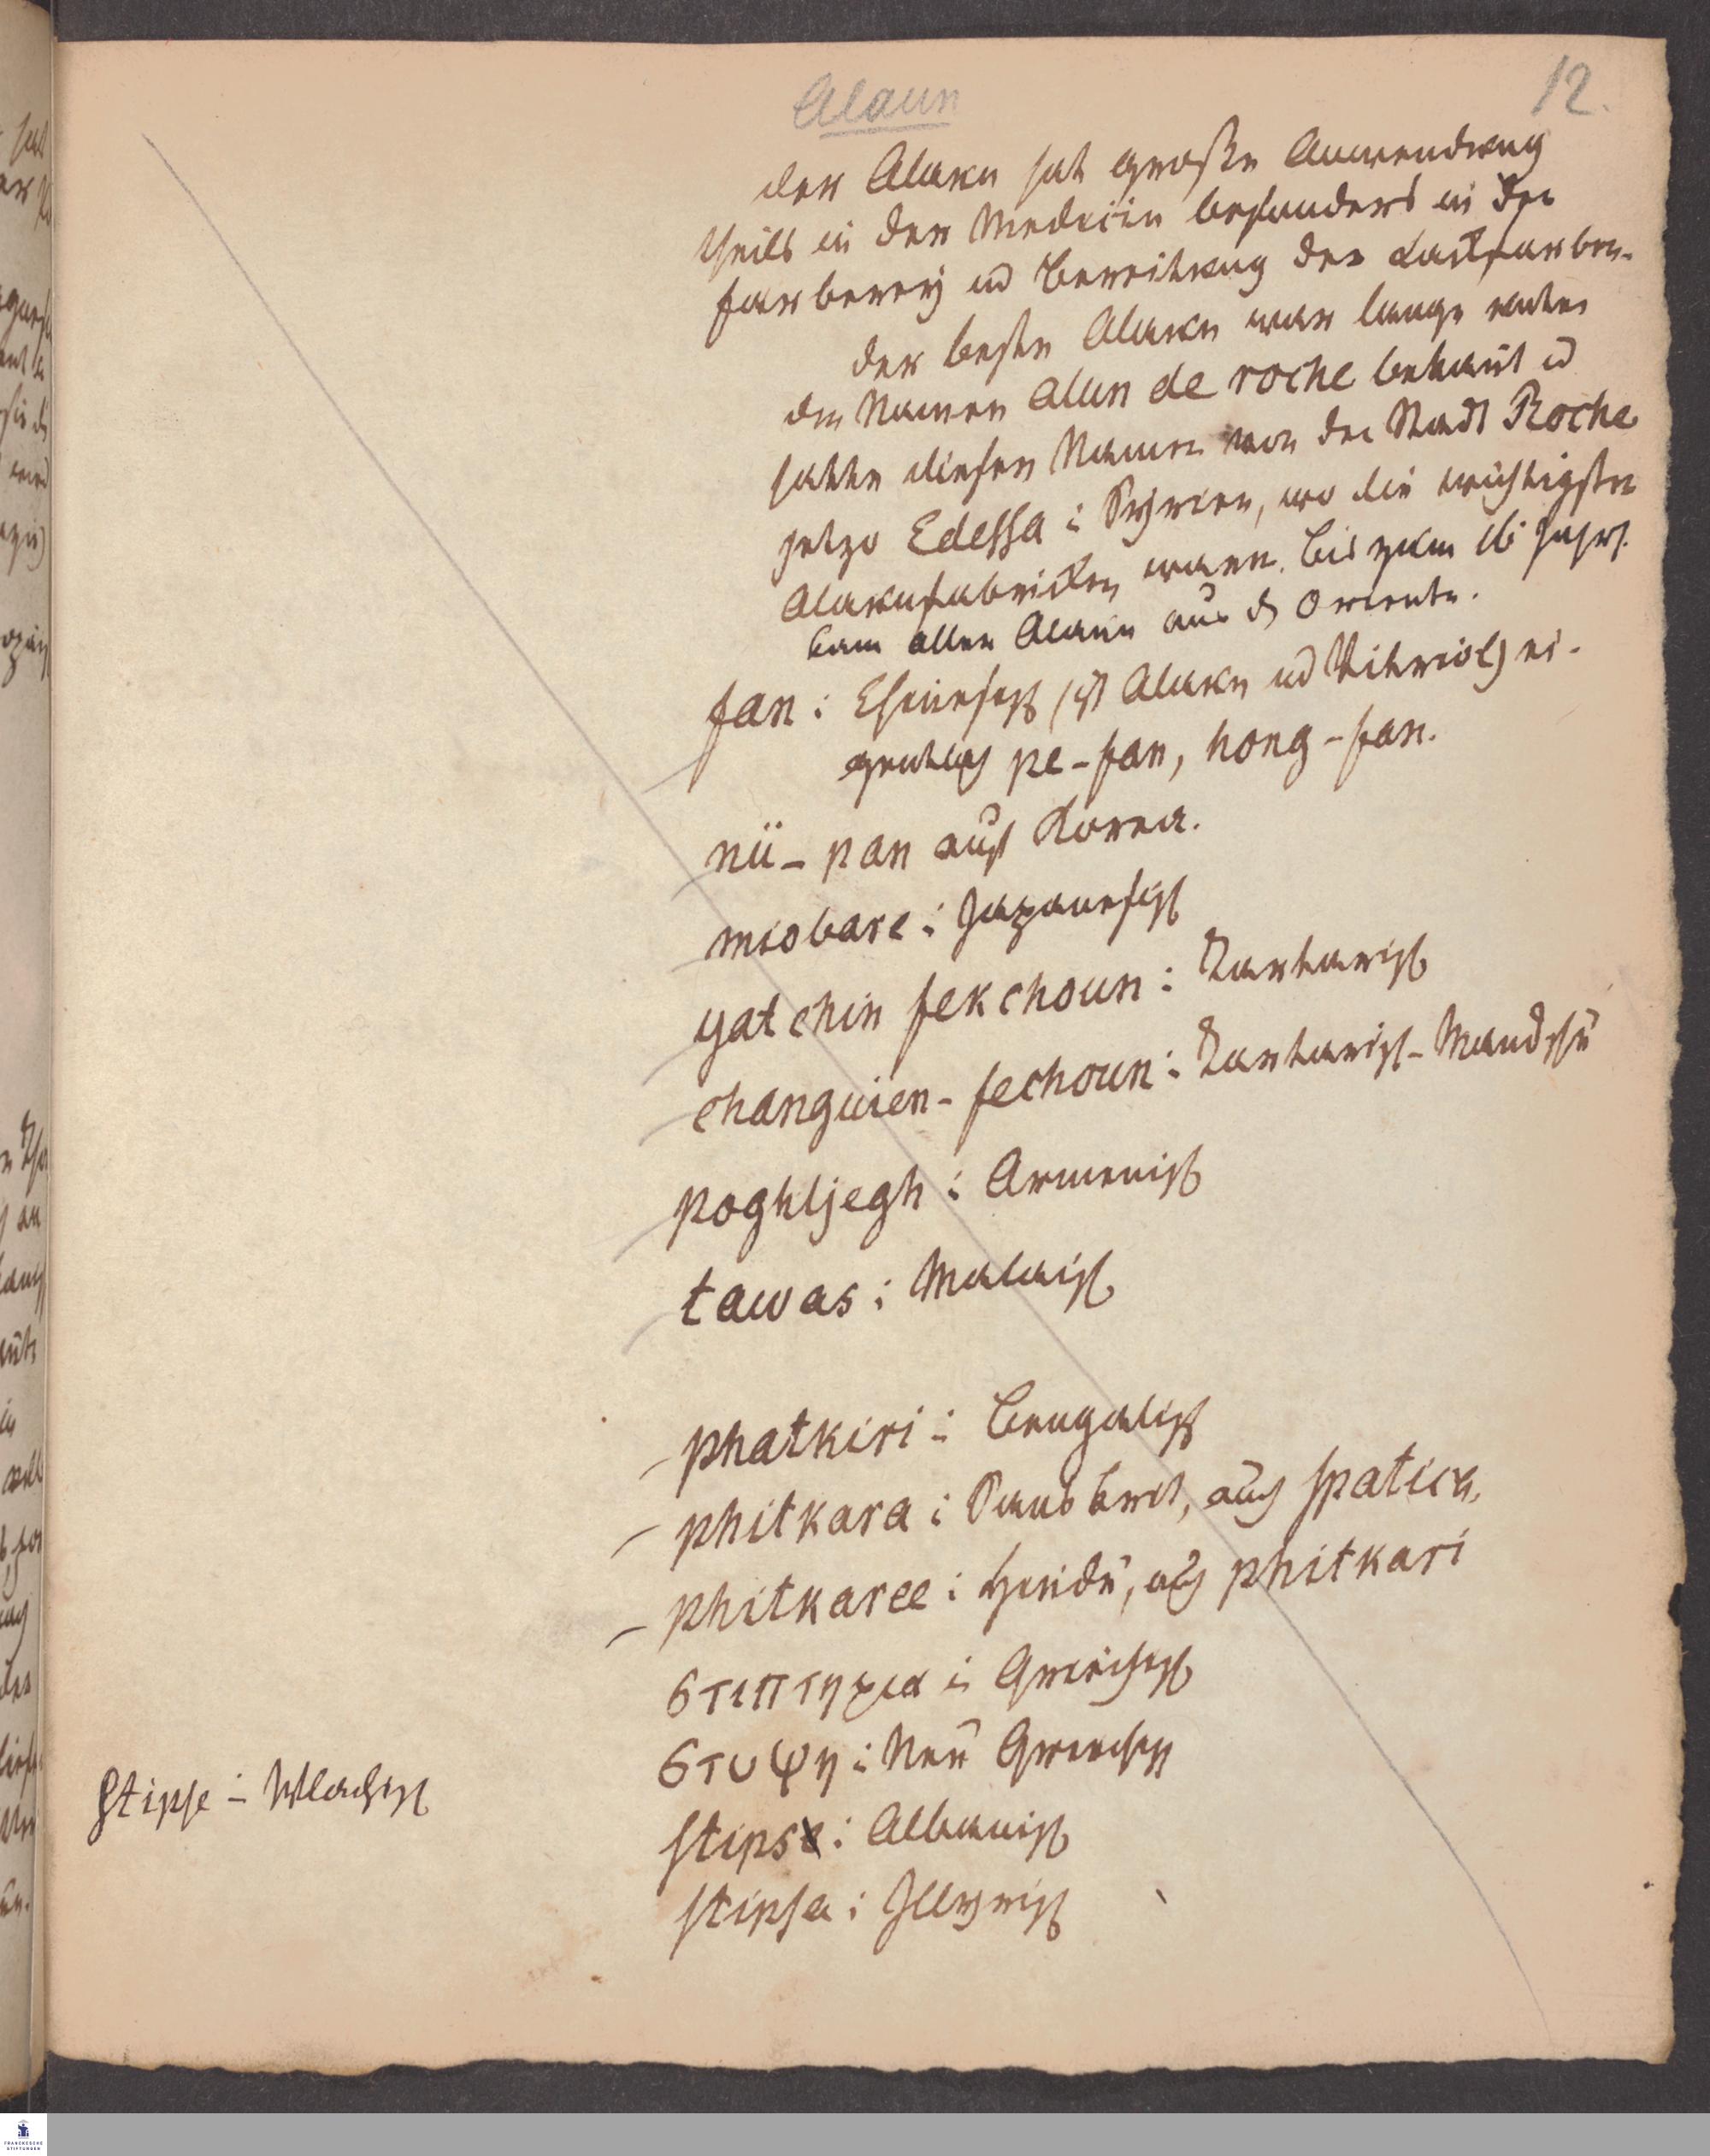 Alaun
12.
der Alaun hat große Anwendung
theils in der Medicin besonders in der
farberey und Bereitung der Lackfarben.
der beste Alaun war lange unter
den Namen Alun de roche bekant u
hatte diesen Namen von der Stadt Roche
jetzo Edessa i Syrien, wo die wichtigsten
Alaunfabricken waren. bis zum 16 Jahrh.
kam aller Alaun aus d Oriente.
fan : Chinesisch (ist Alaun und Vitriol) ei-
gentlich pe-fan, hong-fan.
nü-pan auf Korea.
miobare : Japanesisch
yatchin fekchoun : Tartarisch
changuien-fechoun : Tartarisch-Mandschu
poghljegh : Armenisch
tawas : Malaisch
phatkiri : Bengalisch
phitkara : Sanskrit, auch spatica,
phitkaree : Hindu, auch phitkari
στιπτηρια : Griechisch
στυψη : Neu Griechisch
Stipse : Wlachisch
stips : Albanisch
stipsa : Illyrisch
FRANCKESCHE
STIFTUNGEN